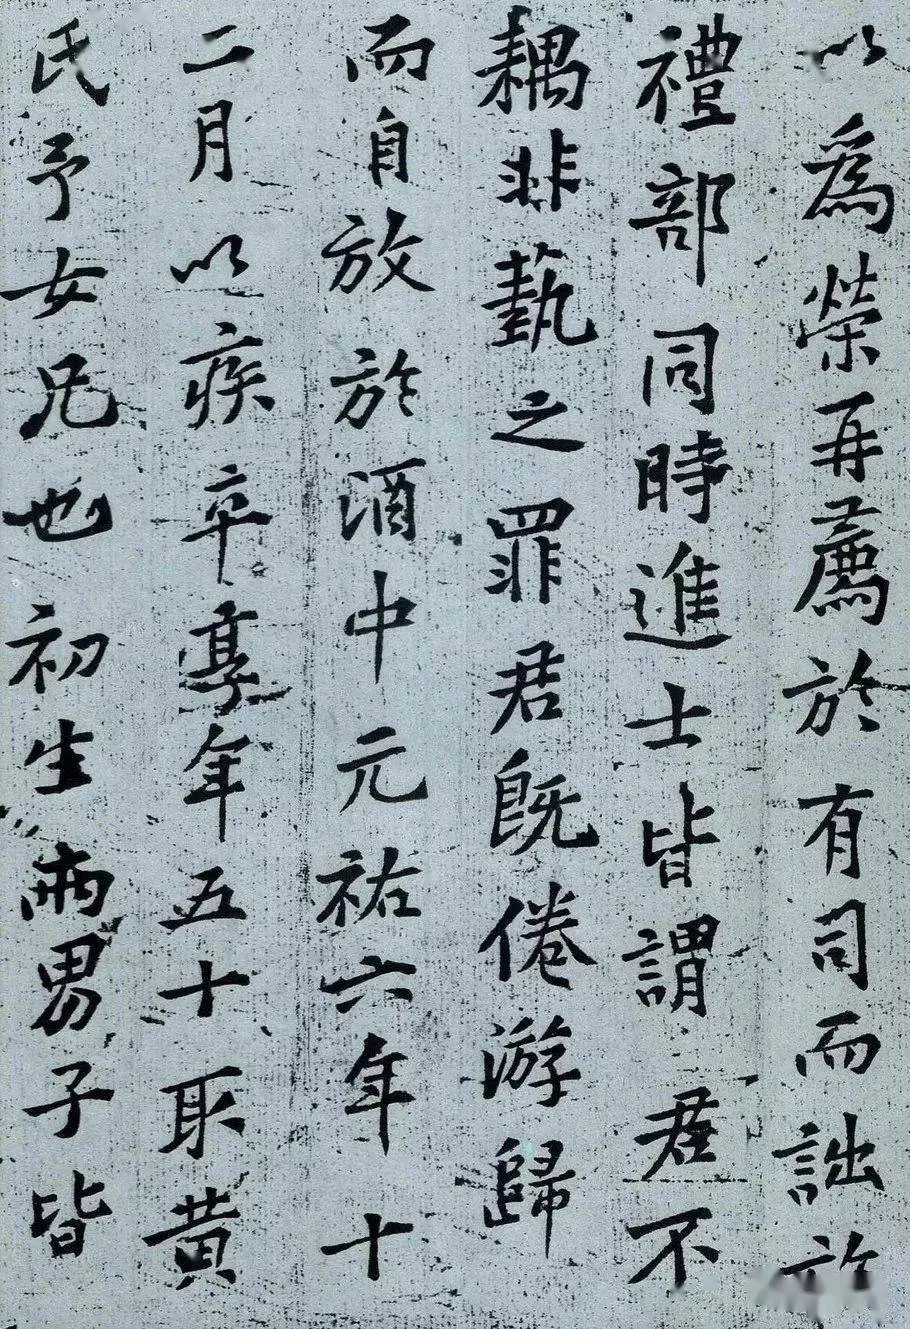 以為榮再薦於有司而詘於
禮部同時進士皆謂君不
耦非藝之罪君既倦游歸
而自放於酒中元祐六年十
二月以疾卒享年五十取黃
氏予女兄也初生兩男子皆